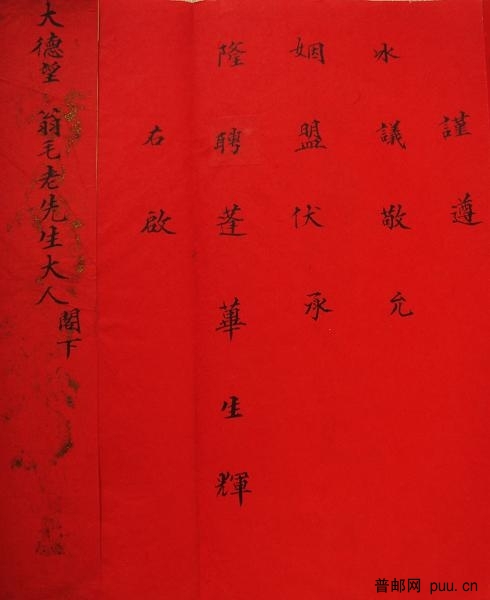 謹遵
冰議敬允
姻盟伏承
隆聘蓬蓽生輝
右啟
大德望 翁毛老先生大人 閣下
普邮网 puu.cn